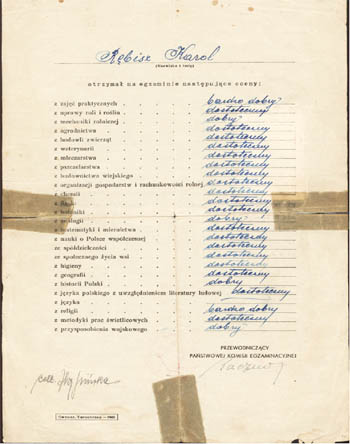 Rębisz Karol
(Nazwisko i imię)
otrzymał na egzaminie następujące oceny:
z zajęć praktycznych . . . . . bardzo dobry
z uprawy roli i roślin . . . . . dostateczny
z mechaniki rolniczej . . . . . dobry
z ogrodnictwa . . . . . dostateczny
z hodowli zwierząt . . . . . dostateczny
z weterynarii . . . . . dostateczny
z mleczarstwa . . . . . dostateczny
z pszczelarstwa . . . . . dostateczny
z budownictwa wiejskiego . . . . . dostateczny
z organizacji gospodarstw i rachunkowości rolnej dostateczny
z chemii . . . . . dostateczny
z fizyki . . . . . dostateczny
z botaniki . . . . . dostateczny
z zoologii . . . . . dostateczny
z matematyki i miernictwa . . . . . dobry
z nauki o Polsce współczesnej . . . . . dostateczny
ze spółdzielczości . . . . . dostateczny
ze społecznego życia wsi . . . . . dostateczny
z higieny . . . . . dostateczny
z geografii . . . . . dostateczny
z historii Polski . . . . . dobry
z języka polskiego z uwzględnieniem literatury ludowej dostateczny
z języka . . . . .
z religii . . . . . bardzo dobry
z metodyki prac świetlicowych . . . . . dostateczny
z przysposobienia wojskowego . . . . . dobry
PRZEWODNICZĄCY
PAŃSTWOWEJ KOMISJI EGZAMINACYJNEJ